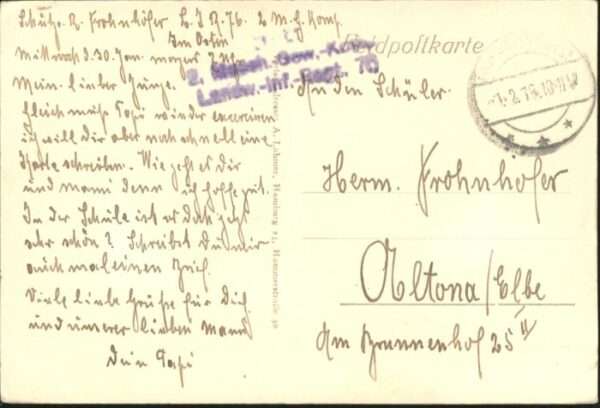 Schütze R. Frohnhöfer L. I. R. 76. 2. M. G. Komp.
Im Osten
Mittwoch d. 30. Jan.
Mein lieber Junge.
Gleich muß Papi wieder exerzieren
ich will dir aber noch schnell eine
Karte schreiben. Wie geht es Dir
und Mami denn ich hoffe gut.
In der Schule ist es doch jetzt
sehr schön? Schreibst Du mir
auch mal einen Brief.
Viele liebe Grüße für Dich
und unserer lieben Mami
Dein Papi
Feldpostkarte
2. Masch.-Gew.-Komp.
Landw.-Inf.-Regt. 76
An den Schüler
Herm. Frohnhöfer
Altona/Elbe
Am Brunnenhof 25 II
A. Lahmer, Hamburg 21, Hammerstraße